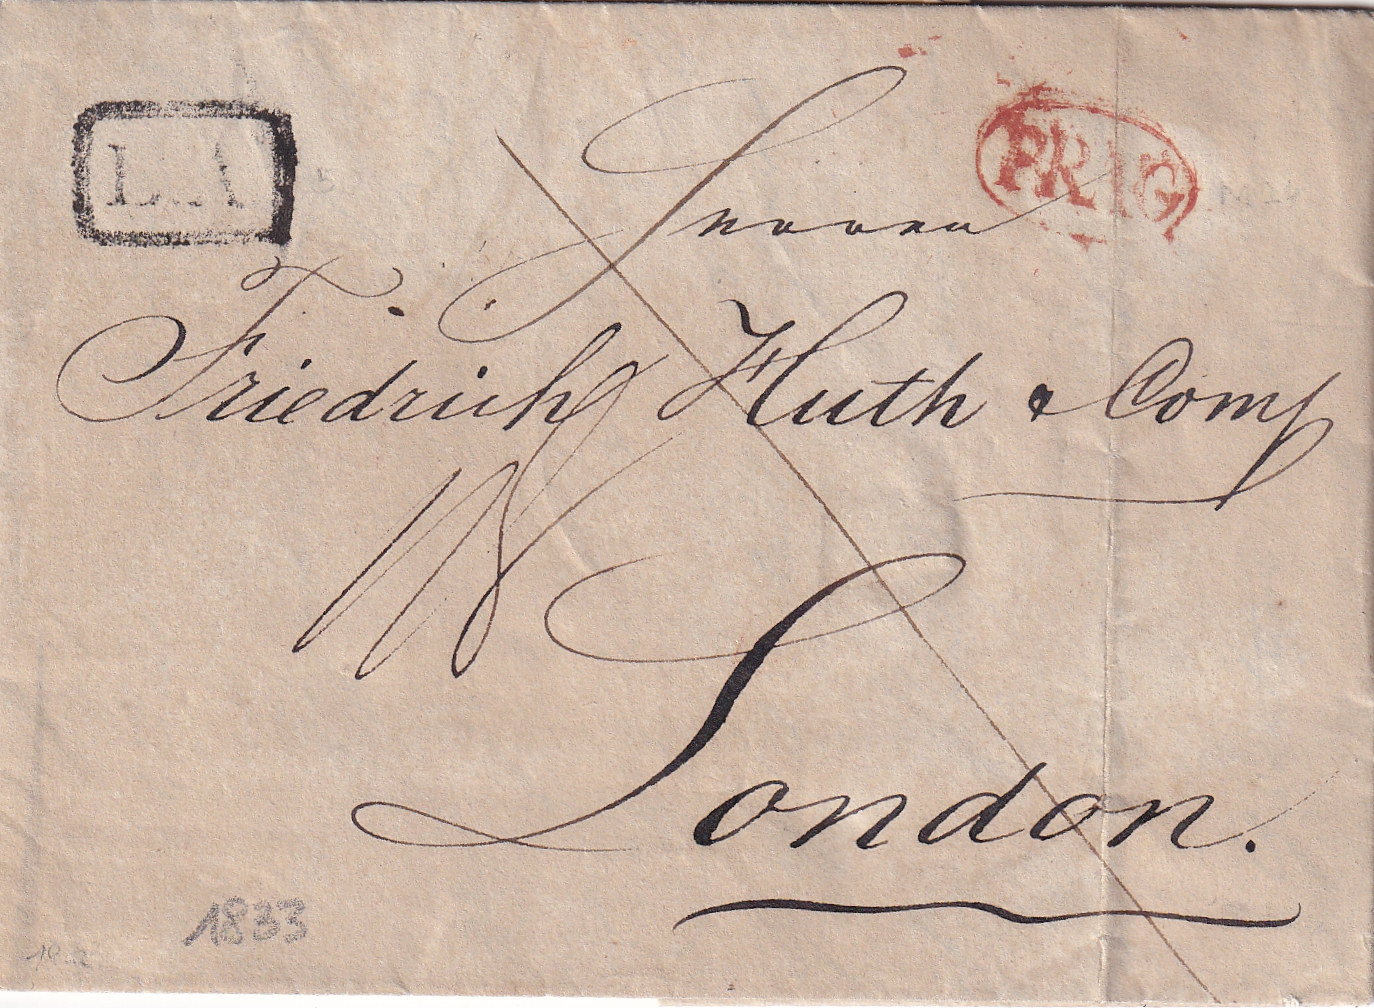 L.A
PRAG
Herren
Friedrich Huth & Comp
London.
1833